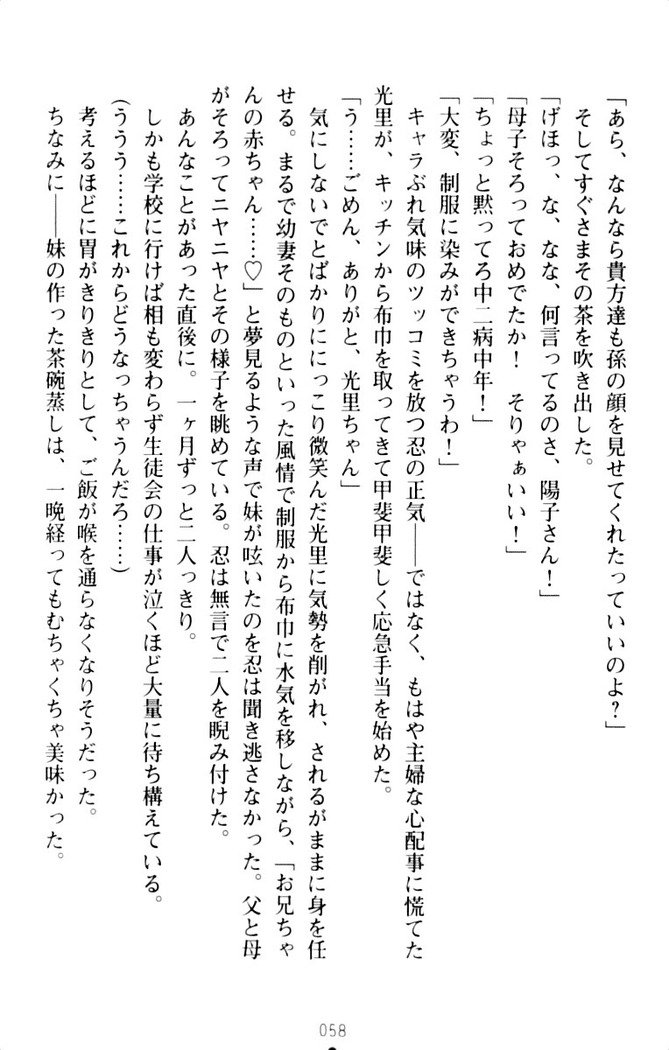 「あら、なんなら貴方達も孫の顔を見せてくれたっていいのよ?」
そしてすぐさまその茶を吹き出した。
「げほっ、な、なな、何言ってるのさ、陽子さん!」
「母子そろっておめでたか! そりゃぁいい!」
「ちょっと黙ってろ中二病中年!」
「大変、制服に染みができちゃうわ!」
キャラぶれ気味のツッコミを放つ忍の正気――ではなく、もはや主婦な心配事に慌てた
光里が、キッチンから布巾を取ってきて甲斐甲斐しく応急手当を始めた。
「う……ごめん、ありがと、光里ちゃん」
気にしないでとばかりににっこり微笑んだ光里に気勢を削がれ、されるがままに身を任
せる。まるで幼妻そのものといった風情で制服から布巾に水気を移しながら、「お兄ちゃ
んの赤ちゃん……♡」と夢見るような声で妹が呟いたのを忍は聞き逃さなかった。父と母
がそろってニヤニヤとその様子を眺めている。忍は無言で二人を睨み付けた。
あんなことがあった直後に。一ヶ月ずっと二人っきり。
しかも学校に行けば相も変わらず生徒会の仕事が泣くほど大量に待ち構えている。
(ううう……これからどうなっちゃうんだろ……)
考えるほどに胃がきりきりとして、ご飯が喉を通らなくなりそうだった。
ちなみに――妹の作った茶碗蒸しは、一晩経ってもむちゃくちゃ美味かった。
058